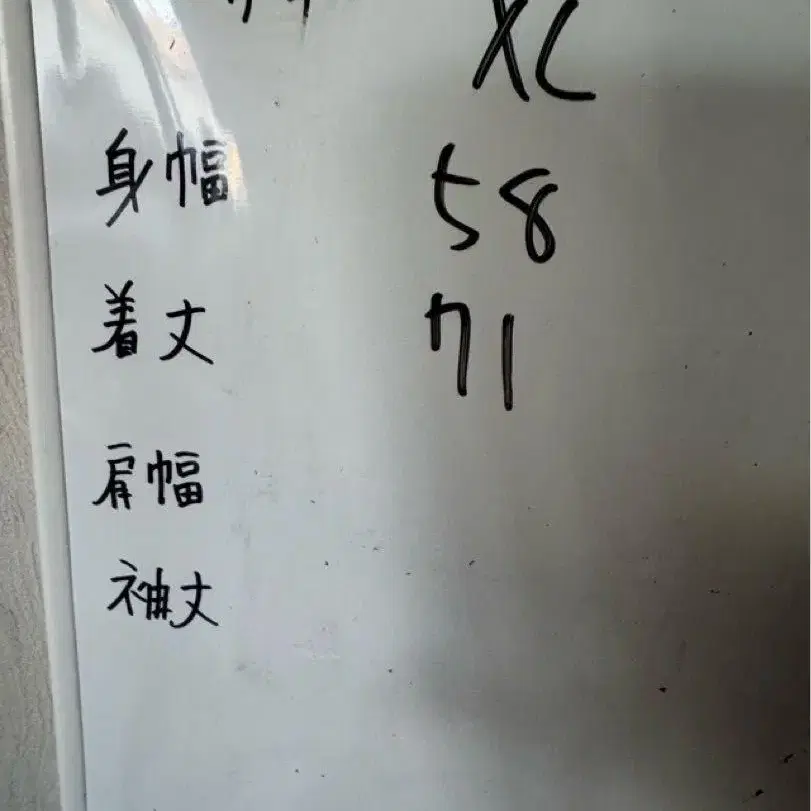 XL
身幅 58
着丈 71
肩幅
袖丈